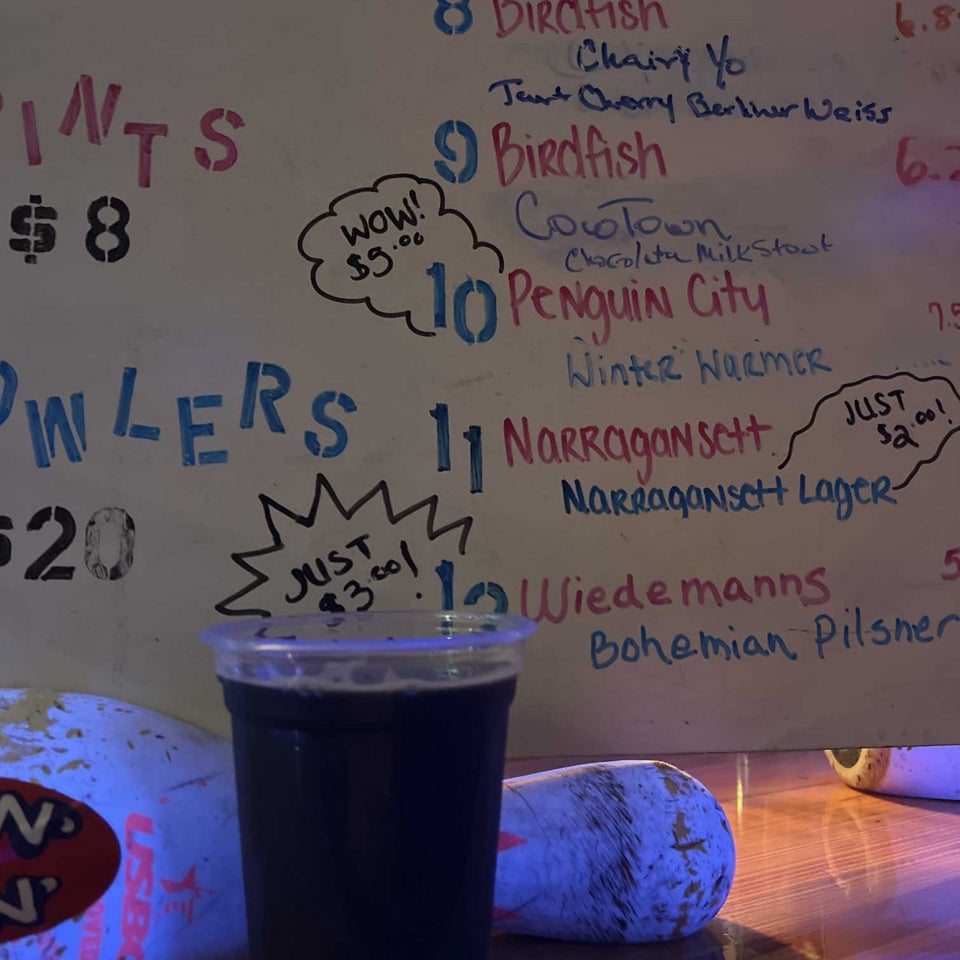 INTS
$8
OWLERS
$20
8 Birdfish 6.8
Chairy Yo
Tart Cherry Berliner Weiss
9 Birdfish 6.2
CowTown
Chocolate Milk Stout
WOW!!
$5.00
10 Penguin City 7.5
Winter Warmer
11 Narragansett
Narragansett Lager
JUST
$2.00!
JUST
$3.00!
12 Wiedemanns 5
Bohemian Pilsner
USBC